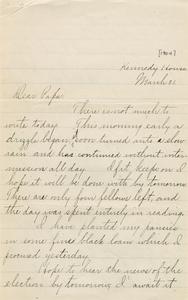 [1904]
Kennedy House
March 21
Dear Papa:
There is not much to
write today. This morning early a
drizzle began, soon turned into a slow
rain and has continued without inter-
mission all day. If it keeps on I
hope it will be done with by tomorrow.
There are only four fellows left, and
the day was spent entirely in reading.
I have planted my pansies
in some fine black loam which I
found yesterday.
Hope to hear the news of the
election by tomorrow. I await it